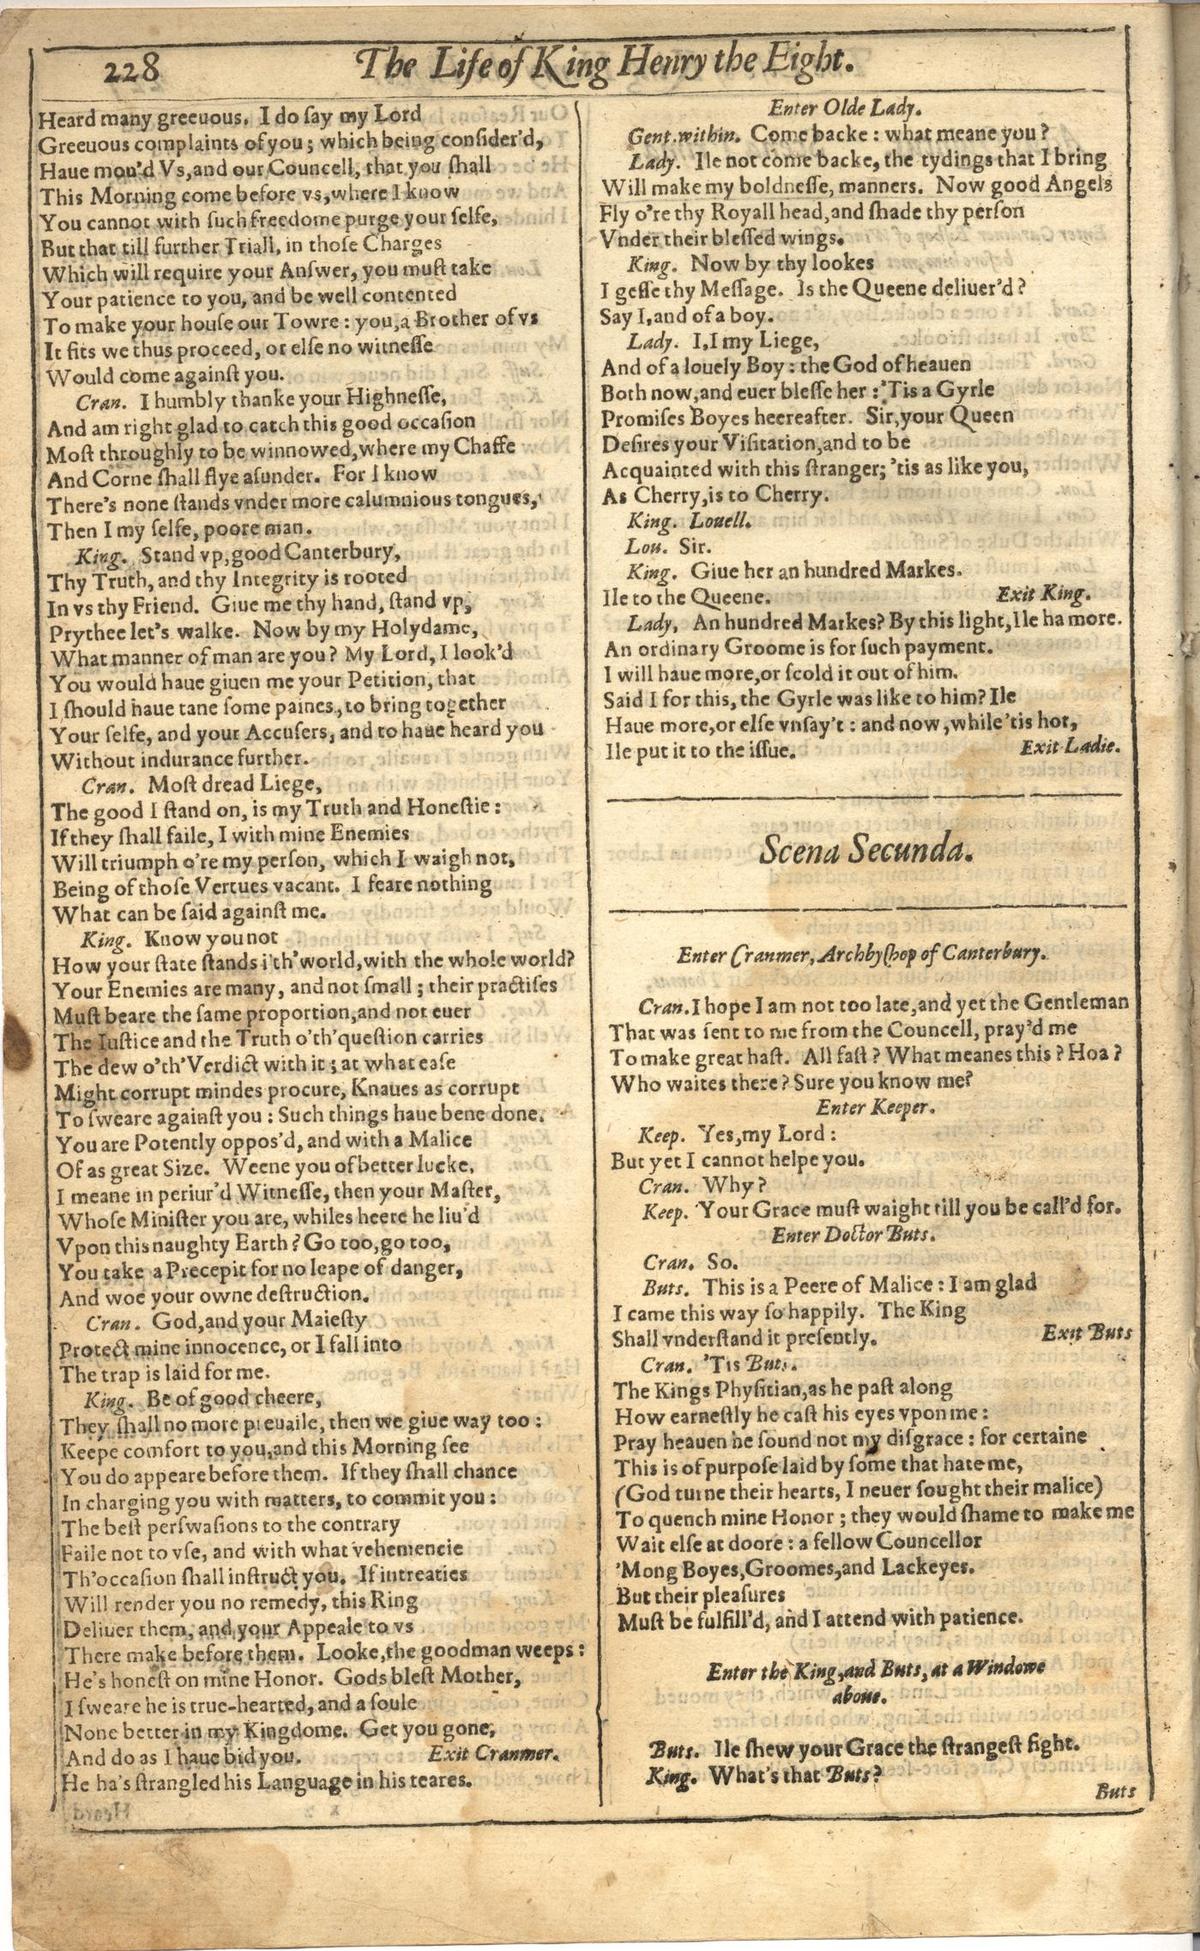 228
The Life of King Henry the Eight.
Heard many greeuous. I do ſay my Lord
Greeuous complaints of you; which being conſider'd,
Haue mou'd Vs, and our Councell, that you ſhall
This Morning come before vs, where I know
You cannot with ſuch freedome purge your ſelfe,
But that till further Triall, in thoſe Charges
Which will require your Anſwer, you muſt take
Your patience to you, and be well contented
To make your houſe our Towre: you, a Brother of vs
It fits we thus proceed, or elſe no witneſſe
Would come againſt you.
Cran. I humbly thanke your Highneſſe,
And am right glad to catch this good occaſion
Moſt throughly to be winnowed, where my Chaffe
And Corne ſhall flye aſunder. For I know
There's none ſtands vnder more calumnious tongues,
Then I my ſelfe, poore man.
King. Stand vp, good Canterbury,
Thy Truth, and thy Integrity is rooted
In vs thy Friend. Giue me thy hand, ſtand vp,
Prythee let's walke. Now by my Holydame,
What manner of man are you? My Lord, I look'd
You would haue giuen me your Petition, that
I ſhould haue tane ſome paines, to bring together
Your ſelfe, and your Accuſers, and to haue heard you
Without indurance further.
Cran. Moſt dread Liege,
The good I ſtand on, is my Truth and Honeſtie:
If they ſhall faile, I with mine Enemies
Will triumph o're my perſon, which I waigh not,
Being of thoſe Vertues vacant. I feare nothing
What can be ſaid againſt me.
King. Know you not
How your ſtate ſtands i'th'world, with the whole world?
Your Enemies are many, and not ſmall; their practiſes
Muſt beare the ſame proportion, and not euer
The Iuſtice and the Truth o'th'queſtion carries
The dew o'th'Verdict with it; at what eaſe
Might corrupt mindes procure, Knaues as corrupt
To ſweare againſt you: Such things haue bene done.
You are Potently oppos'd, and with a Malice
Of as great Size. Weene you of better lucke,
I meane in periur'd Witneſſe, then your Maſter,
Whoſe Miniſter you are, whiles heere he liu'd
Vpon this naughty Earth? Go too, go too,
You take a Precepit for no leape of danger,
And woe your owne deſtruction.
Cran. God, and your Maieſty
Protect mine innocence, or I fall into
The trap is laid for me.
King. Be of good cheere,
They ſhall no more preuaile, then we giue way too:
Keepe comfort to you, and this Morning ſee
You do appeare before them. If they ſhall chance
In charging you with matters, to commit you:
The beſt perſwaſions to the contrary
Faile not to vſe, and with what vehemencie
Th'occaſion ſhall inſtruct you. If intreaties
Will render you no remedy, this Ring
Deliuer them, and your Appeale to vs
There make before them. Looke, the goodman weeps:
He's honeſt on mine Honor. Gods bleſt Mother,
I ſweare he is true-hearted, and a ſoule
None better in my Kingdome. Get you gone,
And do as I haue bid you. Exit Cranmer.
He ha's ſtrangled his Language in his teares.
Enter Olde Lady.
Gent. within. Come backe: what meane you?
Lady. Ile not come backe, the tydings that I bring
Will make my boldneſſe, manners. Now good Angels
Fly o're thy Royall head, and ſhade thy perſon
Vnder their bleſſed wings.
King. Now by thy lookes
I geſſe thy Meſſage. Is the Queene deliuer'd?
Say I, and of a boy.
Lady. I, I my Liege,
And of a louely Boy: the God of heauen
Both now, and euer bleſſe her: 'Tis a Gyrle
Promiſes Boyes heereafter. Sir, your Queen
Deſires your Viſitation, and to be
Acquainted with this ſtranger; 'tis as like you,
As Cherry, is to Cherry.
King. Louell.
Lou. Sir.
King. Giue her an hundred Markes.
Ile to the Queene. Exit King.
Lady, An hundred Markes? By this light, Ile ha more.
An ordinary Groome is for ſuch payment.
I will haue more, or ſcold it out of him.
Said I for this, the Gyrle was like to him? Ile
Haue more, or elſe vnſay't: and now, while 'tis hot,
Ile put it to the iſſue. Exit Ladie.
Scena Secunda.
Enter Cranmer, Archbyſhop of Canterbury.
Cran. I hope I am not too late, and yet the Gentleman
That was ſent to me from the Councell, pray'd me
To make great haſt. All faſt? What meanes this? Hoa?
Who waites there? Sure you know me?
Enter Keeper.
Keep. Yes, my Lord:
But yet I cannot helpe you.
Cran. Why?
Keep. Your Grace muſt waight till you be call'd for.
Enter Doctor Buts.
Cran. So.
Buts. This is a Peere of Malice: I am glad
I came this way ſo happily. The King
Shall vnderſtand it preſently. Exit Buts
Cran. 'Tis Buts.
The Kings Phyſitian, as he paſt along
How earneſtly he caſt his eyes vpon me:
Pray heauen he ſound not my diſgrace: for certaine
This is of purpoſe laid by ſome that hate me,
(God turne their hearts, I neuer ſought their malice)
To quench mine Honor; they would ſhame to make me
Wait elſe at doore: a fellow Councellor
'Mong Boyes, Groomes, and Lackeyes.
But their pleaſures
Muſt be fulfill'd, and I attend with patience.
Enter the King, and Buts, at a Windowe
aboue.
Buts. Ile ſhew your Grace the ſtrangeſt ſight.
King. What's that Buts?
Buts